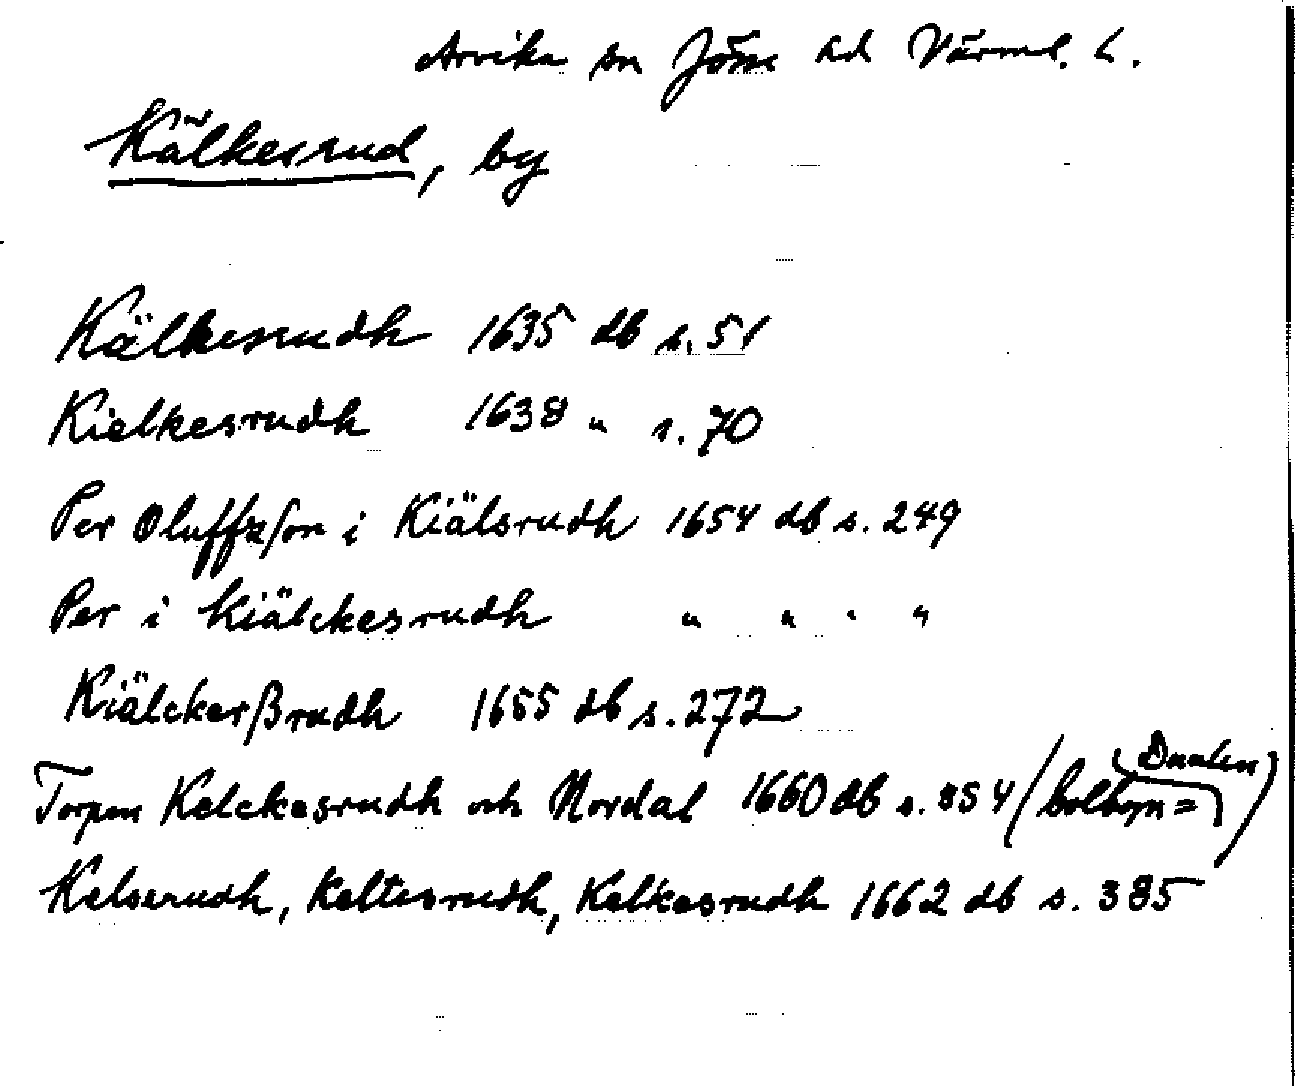 Arvika sn Jösse hd Värml. l.
Kälkesrud, by
Kälkesrudh 1635 db s. 51
Kielkesrudh 1638 " s. 70
Per Oluffzson i Kiälsrudh 1654 db s. 249
Per i Kiälckesrudh " " " "
Kiälckerßrudh 1655 db s. 272
Torpen Kelckesrudh och Nordal 1660 db s. 854 (
Kelserudh, Keltesrudh, Kelkesrudh 1662 db s. 385